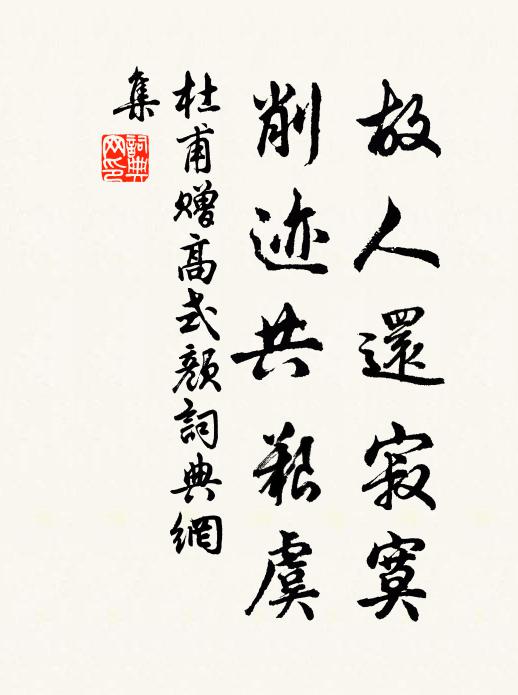 故人還寂寞
削迹共艱虞
杜甫贈高式顏詞典網
集
詞典
网印